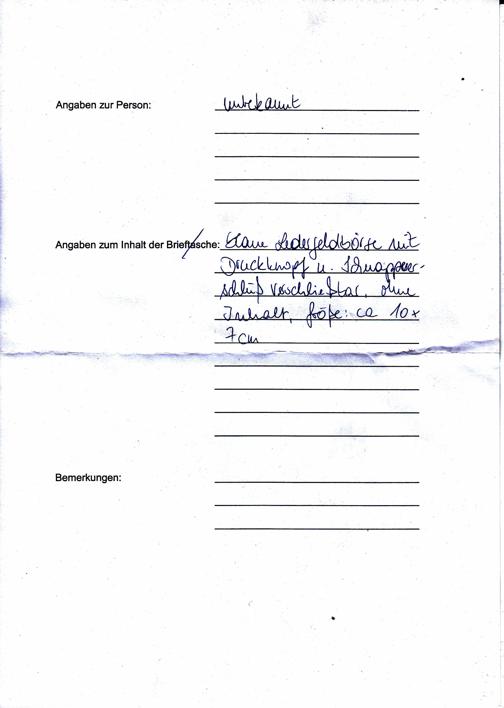 Angaben zur Person: unbekannt
Angaben zum Inhalt der Brieftasche: blaue Ledergeldbörse mit
Druckknopf u. Schnappver-
schluß verschließbar, ohne
Inhalt, Größe: ca 10 x
7 cm
Bemerkungen: